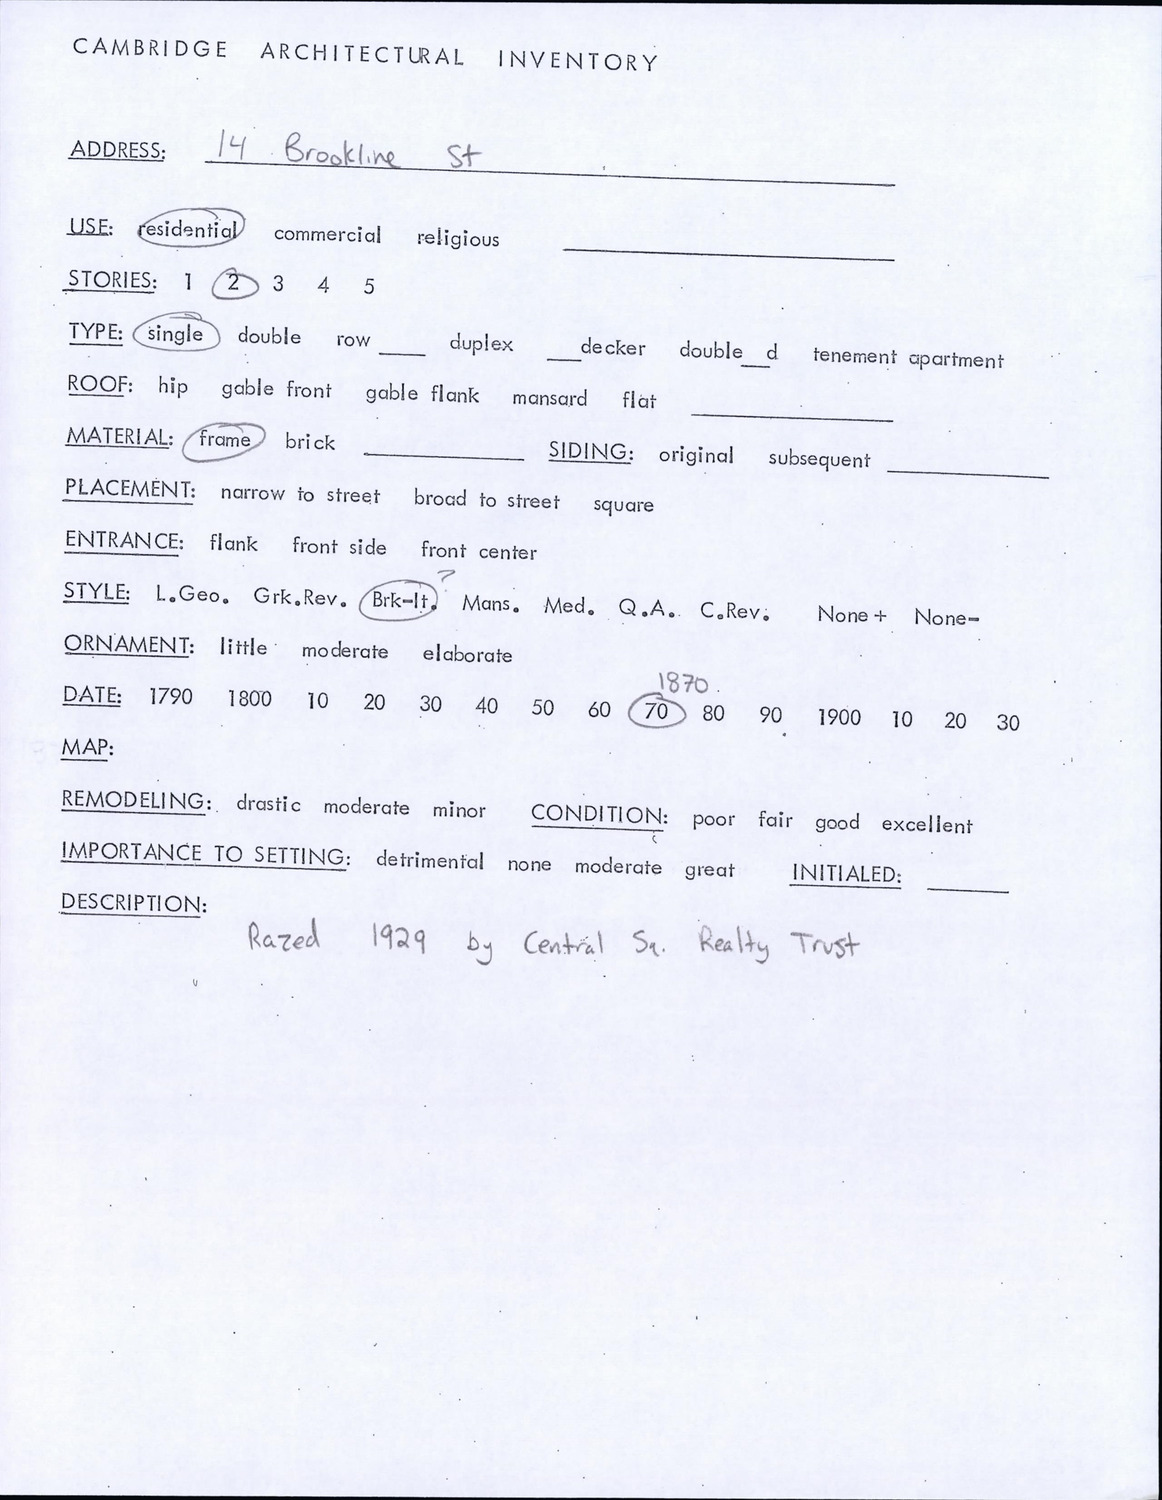 CAMBRIDGE ARCHITECTURAL INVENTORY
ADDRESS: 14 Brookline St
USE: residential commercial religious
STORIES: 1 2 3 4 5
TYPE: single double row ____ duplex ___decker double___d tenement apartment
ROOF: hip gable front gable flank mansard flat
MATERIAL: frame brick ____ SIDING: original subsequent ____
PLACEMENT: narrow to street broad to street square
ENTRANCE: flank front side front center
?
STYLE: L.Geo. Grk.Rev. Brk-It. Mans. Med. Q.A. C.Rev. None+ None-
ORNAMENT: little moderate elaborate
1870
DATE: 1790 1800 10 20 30 40 50 60 70 80 90 1900 10 20 30
MAP:
REMODELING: drastic moderate minor CONDITION: poor fair good excellent
IMPORTANCE TO SETTING: detrimental none moderate great INITIALED: ____
DESCRIPTION:
Razed 1929 by Central Sq. Realty Trust